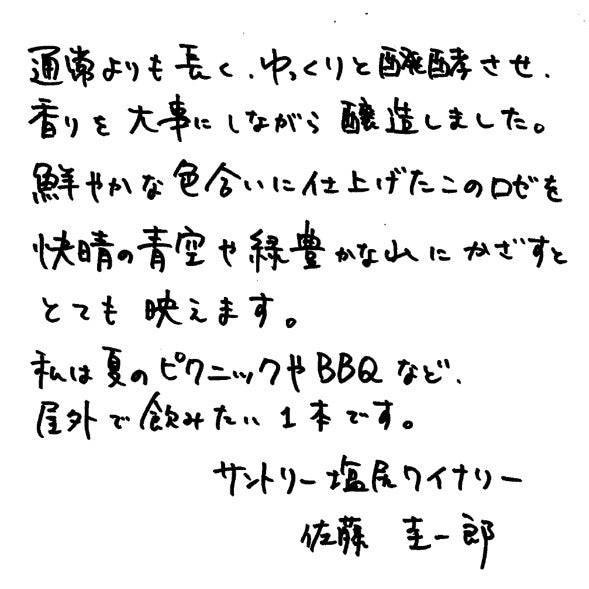 通常よりも長く、ゆっくりと醗酵させ、
香りを大事にしながら醸造しました。
鮮やかな色合いに仕上げたこのロゼを
快晴の青空や緑豊かな山にかざすと
とても映えます。
私は夏のピクニックやBBQなど、
屋外で飲みたい1本です。
サントリー塩尻ワイナリー
佐藤 圭一郎